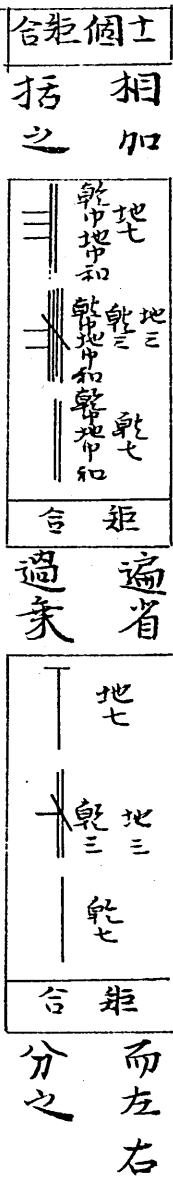 十一個矩合
相加
括之
地七
乾巾地巾和
地三
乾三
乾巾地巾和
乾七
乾巾地巾和
矩合
遍省
過乗
地七
地三
乾三
乾七
矩合
而左右
分之